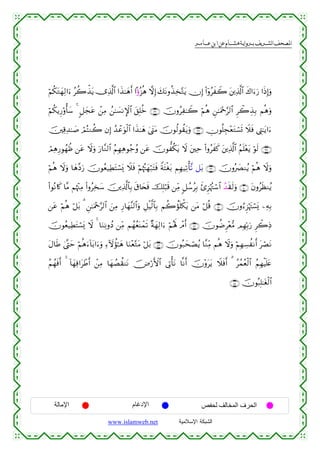 المصحف الشريف برواية هشام عن ابن عامر
وَإِذَا رَءَاكَ ٱلَّذِينَ كَفَرُوٓا۟ إِن يَتَّخِذُونَكَ إِلَّا هُزُؤًا أَهَٰذَا ٱلَّذِى يَذْكُرُ ءَالِهَتَكُمْ
وَهُم بِذِكْرِ ٱلرَّحْمَٰنِ هُمْ كَٰفِرُونَ ۝ خُلِقَ ٱلْإِنسَٰنُ مِنْ عَجَلٍ ۚ سَأُو۟رِيكُمْ
ءَايَٰتِى فَلَا تَسْتَعْجِلُونِ ۝ وَيَقُولُونَ مَتَىٰ هَٰذَا ٱلْوَعْدُ إِن كُنتُمْ صَٰدِقِينَ
۝ لَوْ يَعْلَمُ ٱلَّذِينَ كَفَرُوا۟ حِينَ لَا يَكُفُّونَ عَن وُجُوهِهِمُ ٱلنَّارَ وَلَا عَن ظُهُورِهِمْ
وَلَا هُمْ يُنصَرُونَ ۝ بَل تَّأْتِيهِم بَغْتَةً فَتَبْهَتُهُمْ فَلَا يَسْتَطِيعُونَ رَدَّهَا وَلَا هُمْ
يُنظَرُونَ ۝ وَلَقَدُ ٱسْتُهْزِئَ بِرُسُلٍ مِّن قَبْلِكَ فَحَاقَ بِٱلَّذِينَ سَخِرُوا۟ مِنْهُم مَّا كَانُوا۟
بِهِۦ يَسْتَهْزِءُونَ ۝ قُلْ مَن يَكْلَؤُكُم بِٱلَّيْلِ وَٱلنَّهَارِ مِنَ ٱلرَّحْمَٰنِ ۗ بَلْ هُمْ عَن
ذِكْرِ رَبِّهِم مُّعْرِضُونَ ۝ أَمْ لَهُمْ ءَالِهَةٌ تَمْنَعُهُم مِّن دُونِنَا ۚ لَا يَسْتَطِيعُونَ
نَصْرَ أَنفُسِهِمْ وَلَا هُم مِّنَّا يُصْحَبُونَ ۝ بَلْ مَتَّعْنَا هَٰٓؤُلَآءِ وَءَابَآءَهُمْ حَتَّىٰ طَالَ
عَلَيْهِمُ ٱلْعُمُرُ ۗ أَفَلَا يَرَوْنَ أَنَّا نَأْتِى ٱلْأَرْضَ نَنقُصُهَا مِنْ أَطْرَافِهَآ ۚ أَفَهُمُ
ٱلْغَٰلِبُونَ ۝
الحرف المخالف لحفص الإدغام الإمالة
الشبكة الإسلامية www.islamweb.net